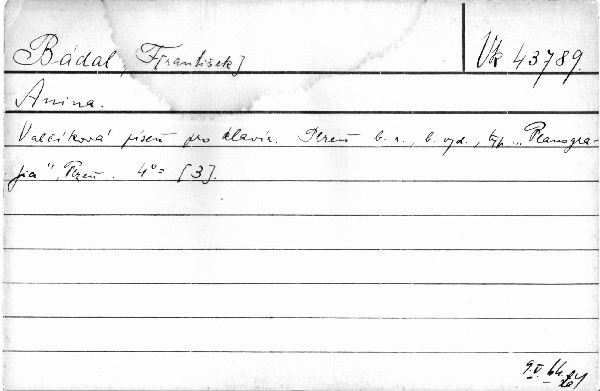 Bádal, F[rantišek] Vk 43789.
Anina.
Valčíková píseň pro klavír. Plzeň b. r., b. vyd., typ. „Planogra-
fia", Plzeň. 4° = [3].
9.V.